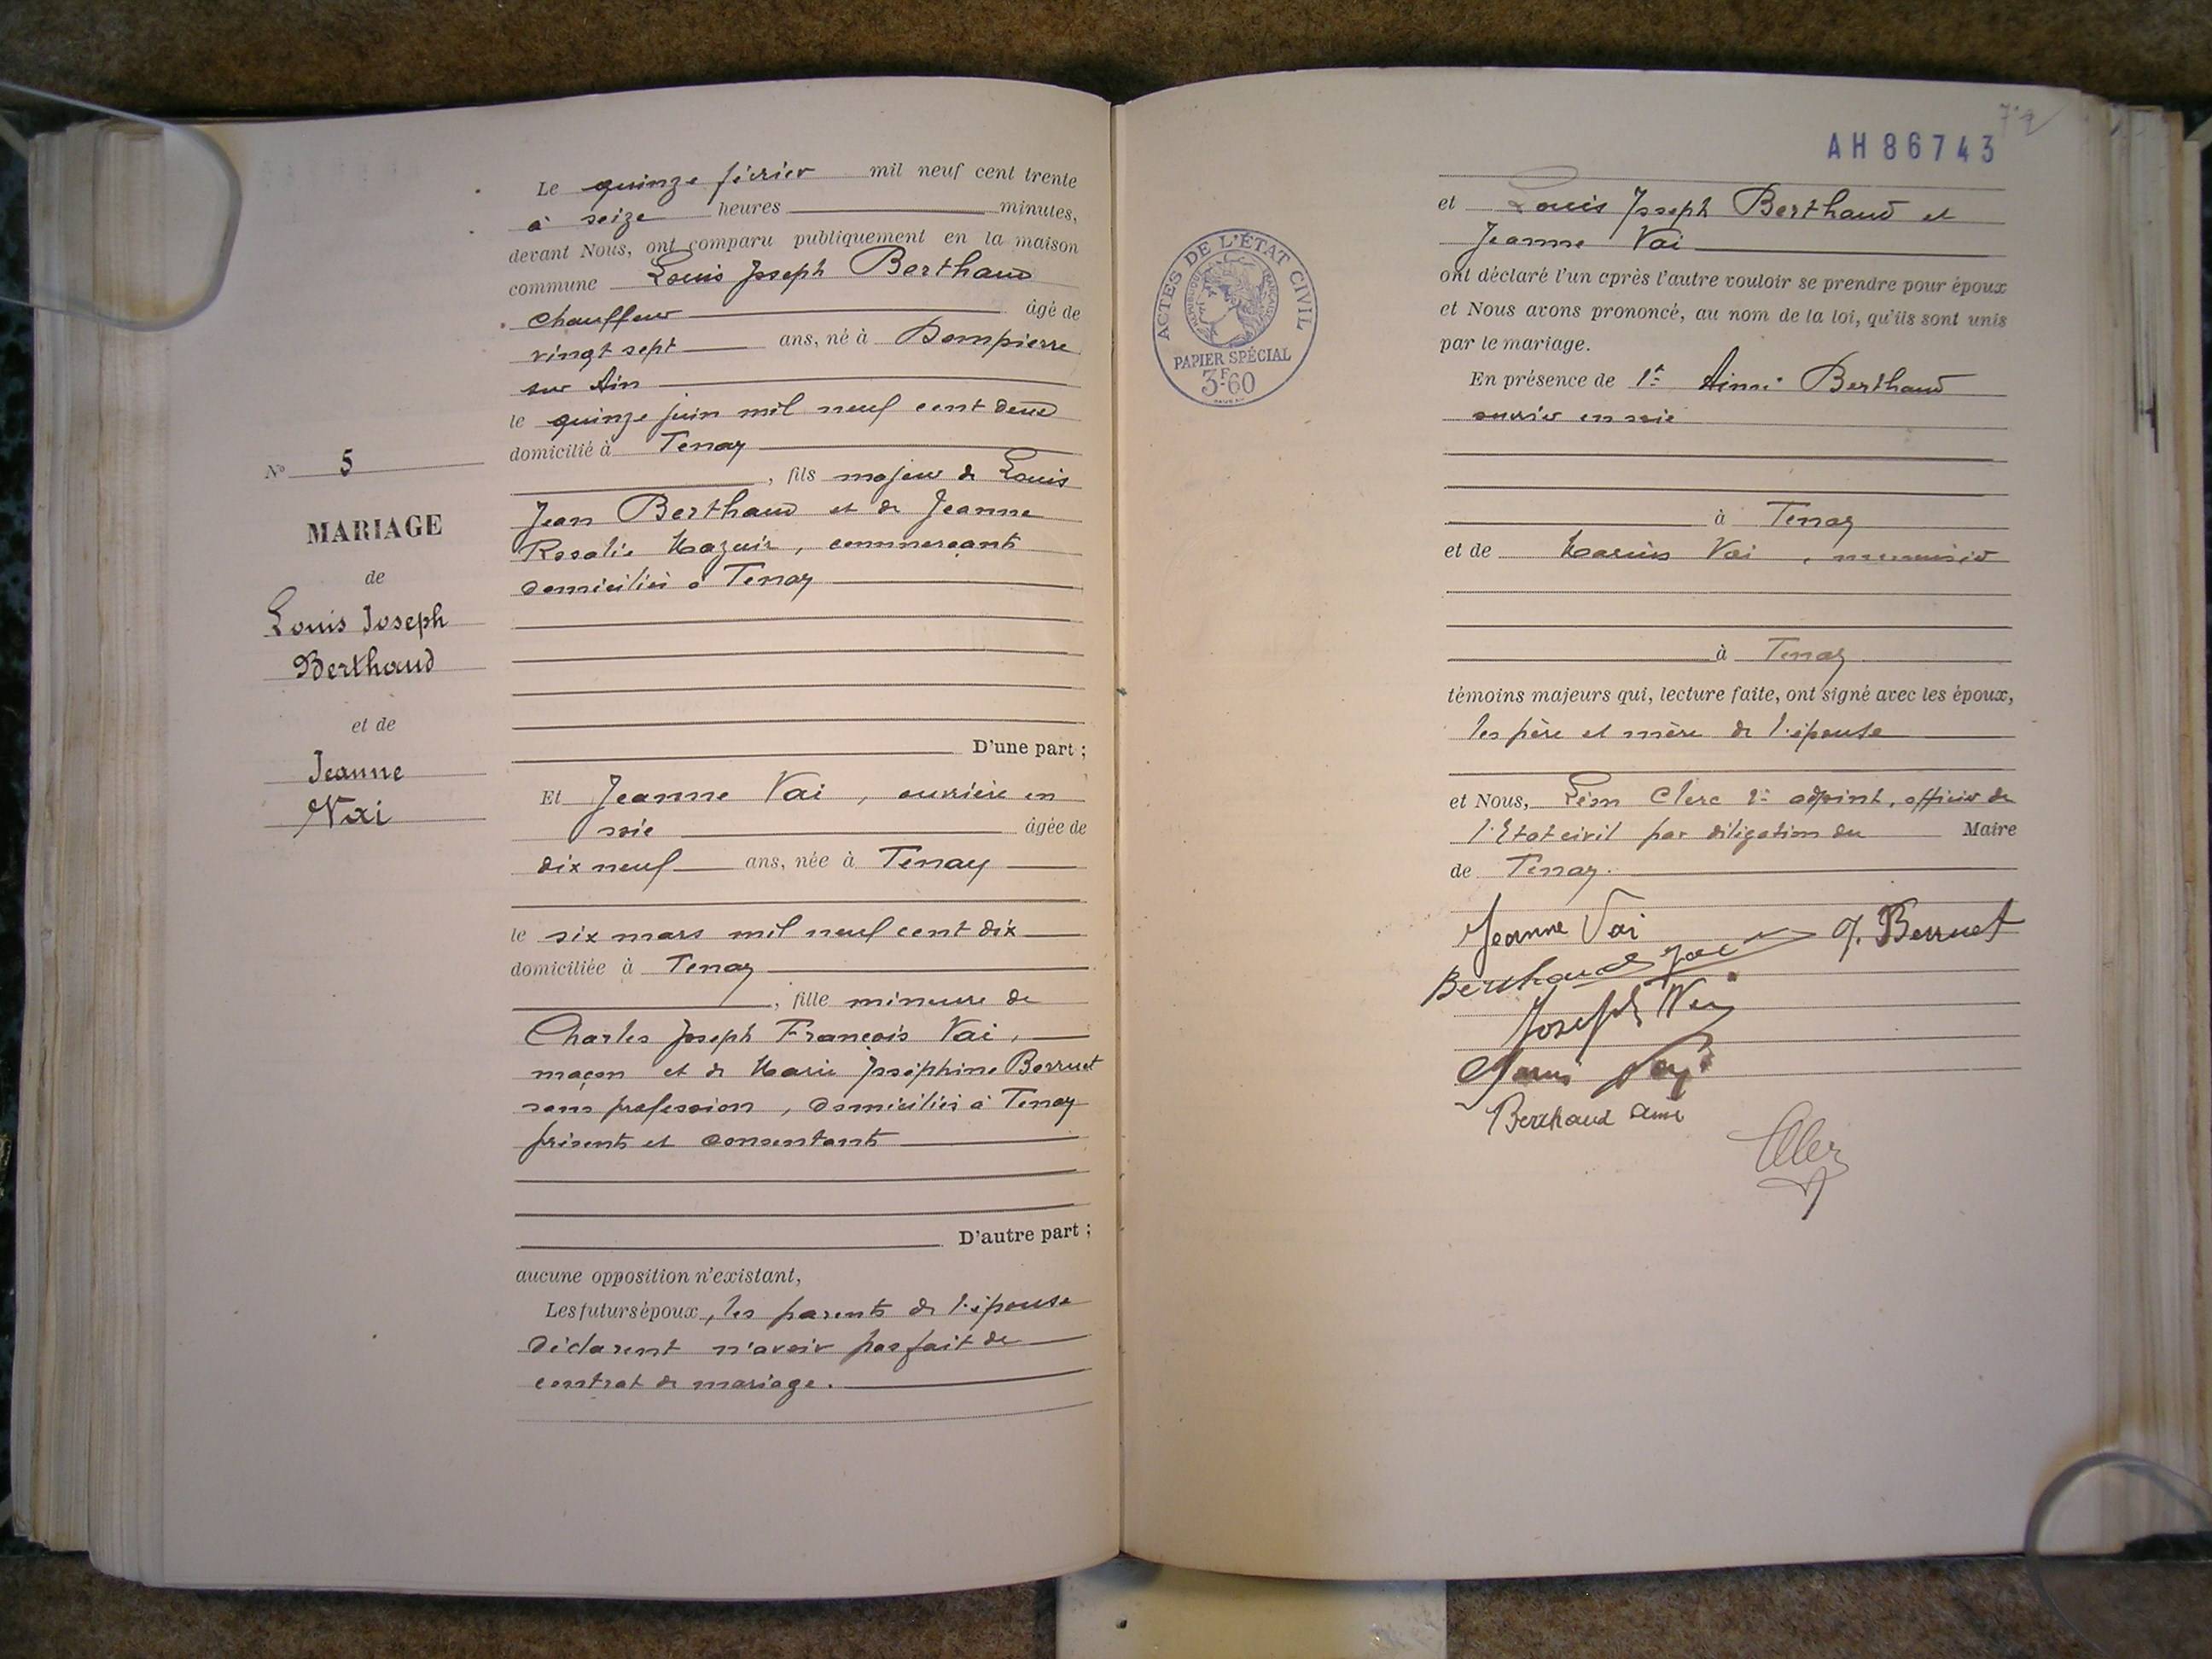 Le quinze février mil neuf cent trente
à seize heures minutes,
devant Nous, ont comparu publiquement en la maison
commune Louis Joseph Berthaud
chauffeur âgé de
vingt sept ans, né à Dompierre
sur Ain
le quinze juin mil neuf cent deux
domicilié à Tenay
, fils majeur de Louis
Jean Berthaud et de Jeanne
Rosalie Mazuir, commerçants
domiciliés à Tenay
N° 5
MARIAGE
de
Louis Joseph
Berthaud
et de
Jeanne
Vai
D'une part ;
Et Jeanne Vai, ouvrière en
soie âgée de
dix neuf ans, née à Tenay
le six mars mil neuf cent dix
domiciliée à Tenay
, fille mineure de
Charles Joseph François Vai,
maçon et de Marie Joséphine Berruet
sans profession, domiciliés à Tenay
présents et consentants
D'autre part ;
aucune opposition n'existant,
Les futurs époux, les parents de l'épouse
déclarent n'avoir pas fait de
contrat de mariage.
AH86743
ACTES DE L'ÉTAT CIVIL
RÉPUBLIQUE FRANÇAISE
PAPIER SPÉCIAL
3F60
et Louis Joseph Berthaud et
Jeanne Vai
ont déclaré l'un après l'autre vouloir se prendre pour époux
et Nous avons prononcé, au nom de la loi, qu'ils sont unis
par le mariage.
En présence de 1° Aimé Berthaud
ouvrier en soie
à Tenay
et de Marius Vai, menuisier
à Tenay
témoins majeurs qui, lecture faite, ont signé avec les époux,
les père et mère de l'épouse
et Nous, Léon Clerc 1er adjoint, officier de
l'Etat civil par délégation du Maire
de Tenay.
Jeanne Vai
J. Berruet
Berthaud
Joseph Vai
Berthaud Aimé